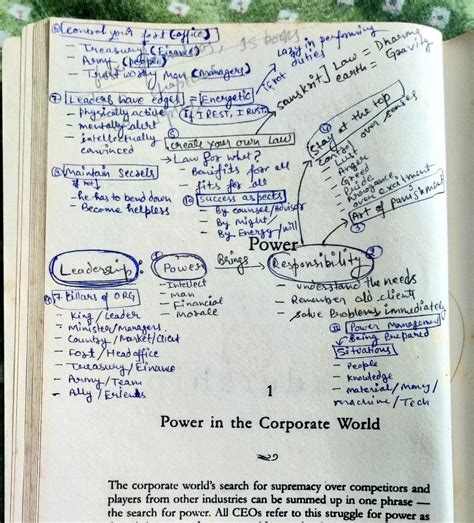 ⑥ control your fort (office)
- Treasury (Finance)
- Army (people)
- Trust worthy Man (managers)
Lazy in performing
duties
is books
⑦ Leaders have edges = Energetic
If I REST, I RUST
- Physically active
- mentally alert
- intellectually
convinced
Sanskrit Law = Dharma
earth = Gravity
⑤
create your own Law
→ Law for what?
- Benifits for all
- fits for all
④
Stay at the top
Control own senses
- Lust
- Anger
- Greed
- Pride
- Arrogance
- over excitment
③ Art of punishment
⑧ Maintain Secrets
if not
- he has to bend down
- Become helpless
⑩ Success aspects
- By counsel/Advisor
- By Might
- By Energy/will
Power
Leadership : Power Brings Responsibility
- Intellect
- man
- Financial
- Morale
- understand the needs
- Remember old client
- solve Problems immediately
7 Pillars of ORG
- King / Leader
- Minister/Managers
- Country/Market/Client
- Fort / Head office
- Treasury/Finance
- Army/Team
- Ally / Friends
⑪ Power Management
- Being Prepared
Situations
- People
- Knowledge
- material/Money/
machine/Tech
1
Power in the Corporate World
The corporate world's search for supremacy over competitors and
players from other industries can be summed up in one phrase —
the search for power. All CEOs refer to this struggle for power as